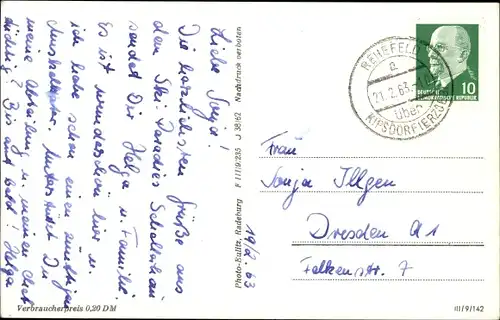 Liebe Sonja!
Die herzlichsten Grüße aus
dem Ski Paradies Schellerhau
sendet Dir Helga u. Familie
Es ist wunderschön hier u.
ich habe schon einen
Muskelkater.
meine Abteilung u. meinen Chef
Bis auf bald! Helga
Verbraucherpreis 0,20 DM
Photo-Bulitz, Radeburg F III/9/235 J 38/62 Nachdruck verboten
19/2 63
REHEFELD
a
21.2.63
über
KIPSDORF(ERZG
DEUTSCHE
DEMOKRATISCHE REPUBLIK
10
Frau
Sonja Illgen
Dresden A1
Falkenstr. 7
III/9/142